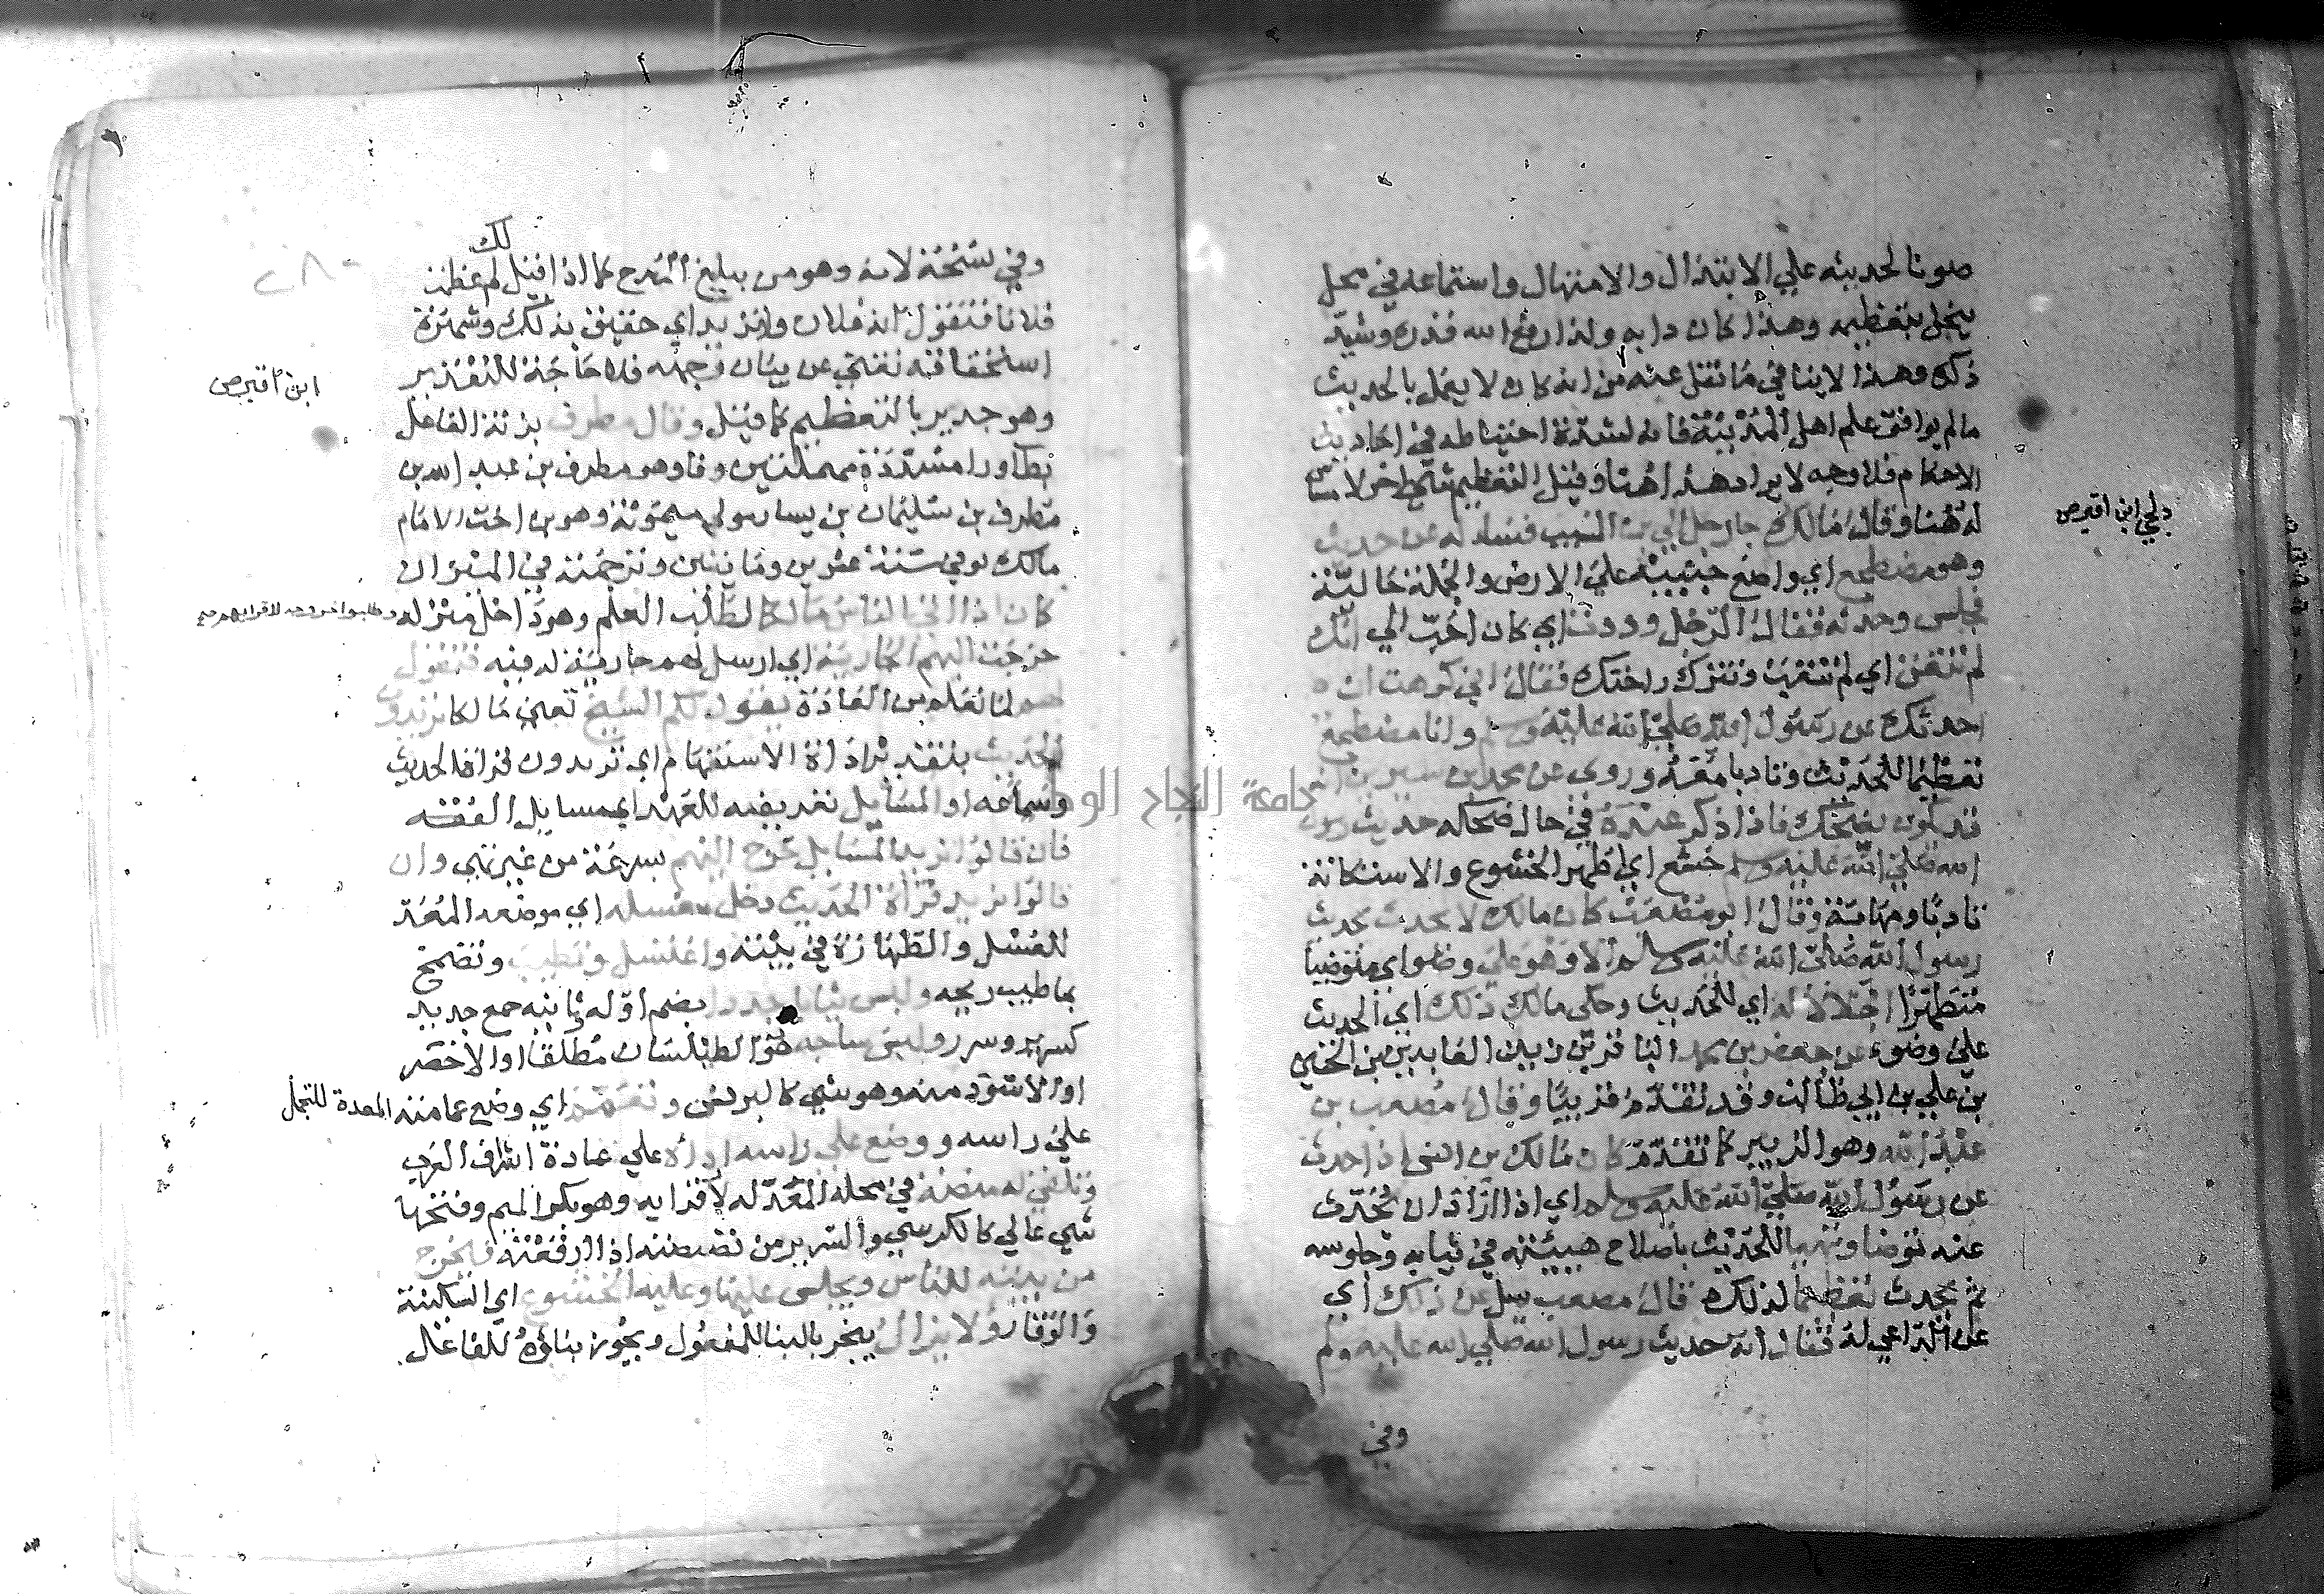 صونا لحديثه علي الابتذال والامتهال واستماعه في محل
يخل بتعظيمه وهذا كان دابه ولذا رفع الله قدره وشيد
ذكره وهذا لا ينافي ما نقل عنه من انه كان لا يعمل بالحديث
مالم يوافق علم اهل المدينة فانه لشدة احتياطه في احاديث
الاحكام فلا وجه لايراد هذا هنا وقيل التعظيم شي اخر لا مساس
له هنا وقال مالك جا رجل الي بن المسيب فساله عن حديث
وهو مضطجع اي واضع جنبيه علي الارض والجملة حالية
فجلس وحدثه فقال الرجل وددت اي كان احب الي انك
لم تتعن اي لم تتعب وتترك راحتك فقال اني كرهت ان
احدثك عن رسول الله صلي الله عليه وسلم وانا مضطجع
تعظيما للحديث وتادبا معه وروي عن محمد بن سيرين انه
قد يكون يضحك فاذا ذكر عنده في حال ضحكه حديث رسول
الله صلي الله عليه وسلم خشع اي اظهر الخشوع والاستكانة
تادبا ومهابة وقال ابو مصعب كان مالك لا يحدث بحديث
رسول الله صلي الله عليه وسلم الا وهو علي وضو اي متوضيا
متطهرا اجلالا له اي للحديث وحكي مالك ذلك اي الحديث
علي وضوء عن جعفر بن محمد الباقر بن زين العابدين بن الحسين
بن علي بن ابي طالب وقد تقدم قريبا وقال مصعب بن
عبد الله وهو الزبير كما تقدم كان مالك بن انس اذا حدث
عن رسول الله صلي الله عليه وسلم اي اذا اراد ان يحدث
عنه توضا وتهيا للحديث باصلاح هيئته في ثيابه وجلوسه
ثم يحدث تعظيما لذلك قال مصعب سيل عن ذلك اي
عن الداعي له فقال انه حديث رسول الله صلي الله عليه وسلم
وفي
دلجي ابن اقبرص
وفي نسخة لانه وهو من بليغ المدح كما اذا قيل لك لم عظمت
فلانا فتقول انه فلان وانه زيد اي حقيق بذلك وشهرة
استحقاقه تغني عن بيان وجهه فلا حاجة للتقدير
وهو جدير بالتعظيم كما قيل وقال مطرف بزنة الفاعل
بطا ورا مشددة مهملتين وفا وهو مطرف بن عبد الله بن
مطرف بن سليمان بن يسار مولي ميمونة وهو بن اخت الامام
مالك توفي سنة عشرين ومايتين وترجمته في الميزان
كان اذا اتي الناس مالكا لطلب العلم وهو داخل منزله
خرجت اليهم الجارية اي ارسل لهم جارية له فيه فتقول
لهم لنا تعلم من العادة يقول لكم الشيخ تعني مالكا تريدون
الحديث بتقدير اداة الاستفهام اي تريدون قراة الحديث
وسماعه او المسايل تعريفه للعهد اي مسايل الفقه
فان قالوا نريد المسايل خرج اليهم بسرعة من غير تهي وان
قالوا نريد قراة الحديث دخل مغتسله اي موضعه المعد
للغسل والطهارة في بيته واغتسل وتطيب وتضمخ
بما طيب ريحه ولبس ثيابا جددا بضم اوله وثانيه جمع جديد
كسرير وسرر ولبس ساجه هو الطيلسان مطلقا او الاخضر
او الاسود منه وهو شي كالبرنس وتعمم اي وضع عمامته المعدة للتجمل
علي راسه ووضع علي راسه رداه علي عادة اشراف العرب
وتلقي له منصة في محله المعد له لاقرايه وهو بكسر الميم وفتحها
شي عالي كالكرسي والسرير من نصصته اذا رفعته فيخرج
من بيته للناس ويجلس عليها وعليه الخشوع اي السكينة
والوقار ولا يزال يبخر بالبنا للمفعول ويجوز بناؤه للفاعل
ابن اقبرص
جامعة النجاح الوطنية